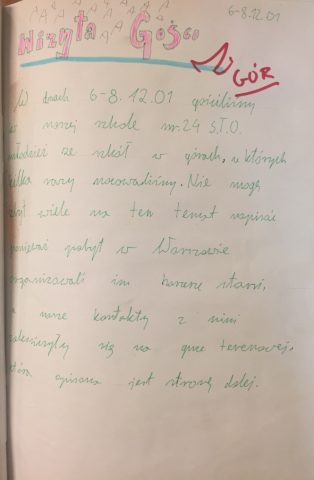 6-8.12.01
Wizyta Gości
z GÓR
W dniach 6-8.12.01 gościliśmy
w naszej szkole nr. 24 S.T.O.
młodzież ze szkół w górach, u których
kilka razy nocowaliśmy. Nie mogę
zbyt wiele na ten temat napisać
ponieważ pobyt w Warszawie
organizowali im harcerze starsi,
a nasze kontakty z nimi
zakończyły się na grze terenowej.
która opisana jest stronę dalej.